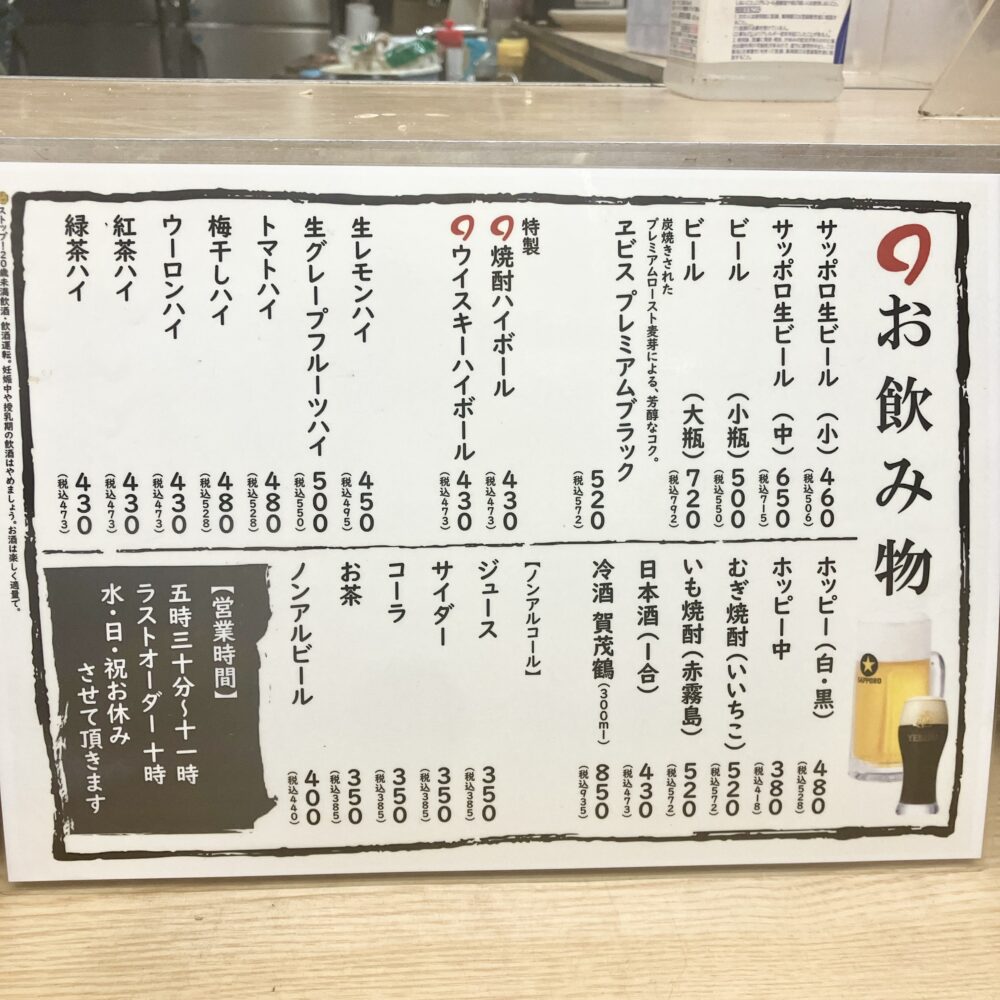 お飲み物
サッポロ生ビール（小） 460
（税込506）
サッポロ生ビール（中） 650
（税込715）
ビール（小瓶） 500
（税込550）
ビール（大瓶） 720
（税込792）
炭焼きされた
プレミアムロースト麦芽による、芳醇なコク。
ヱビス プレミアムブラック
520
（税込572）
特製
焼酎ハイボール 430
（税込473）
ウイスキーハイボール 430
（税込473）
生レモンハイ 450
（税込495）
生グレープフルーツハイ 500
（税込550）
トマトハイ 480
（税込528）
梅干しハイ 480
（税込528）
ウーロンハイ 430
（税込473）
紅茶ハイ 430
（税込473）
緑茶ハイ 430
（税込473）
ホッピー（白・黒） 480
（税込528）
ホッピー中 380
（税込418）
むぎ焼酎（いいちこ） 520
（税込572）
いも焼酎（赤霧島） 520
（税込572）
日本酒（一合） 430
（税込473）
冷酒 賀茂鶴（300ml） 850
（税込935）
【ノンアルコール】
ジュース 350
（税込385）
サイダー 350
（税込385）
コーラ 350
（税込385）
お茶 350
（税込385）
ノンアルビール 400
（税込440）
【営業時間】
五時三十分〜十一時
ラストオーダー十時
水・日・祝お休み
させて頂きます
SAPPORO
YEBISU
ストップ！20歳未満飲酒・飲酒運転。妊娠中や授乳期の飲酒はやめましょう。お酒は楽しく適量で。